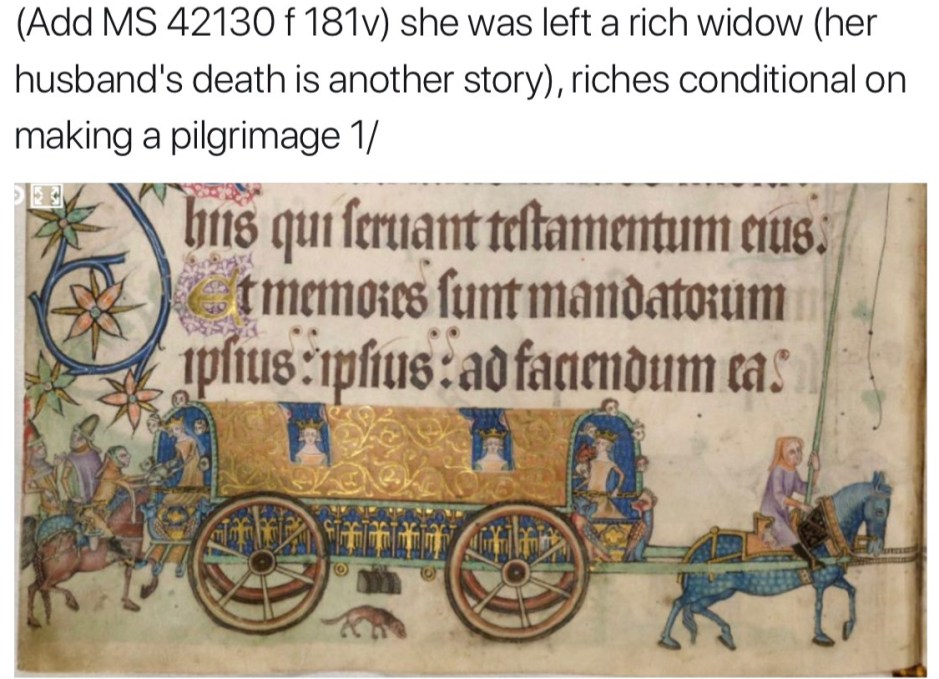 (Add MS 42130 f 181v) she was left a rich widow (her
husband's death is another story), riches conditional on
making a pilgrimage 1/
hiis qui seruant testamentum eius.
Et memores sunt mandatorum
ipsius: ipsius: ad faciendum ea.